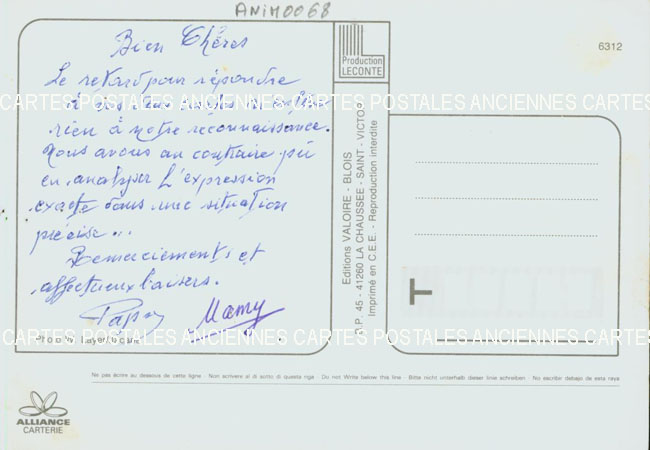 ANIM0068
Bien Chères
Le retard pour répondre
à
rien à notre reconnaissance.
Nous avons au contraire pu
en analyser l'expression
exacte dans une situation
précise...
Remerciements et
affectueux baisers.
Papy Mamy
Photo M. Layer/
Production
LECONTE
6312
Editions VALOIRE - BLOIS
B.P. 45 - 41260 LA CHAUSSEE - SAINT - VICTOR
Imprimé en C.E.E. - Reproduction interdite
CARTES POSTALES ANCIENNES CARTES POSTALES ANCIENNES CARTES
CARTES POSTALES ANCIENNES CARTES POSTALES ANCIENNES CARTES
Ne pas écrire au dessous de cette ligne - Non scrivere al di sotto di questa riga - Do not Write below this line - Bitte nicht unterhalb dieser linie schreiben - No escribir debajo de esta raya
ALLIANCE
CARTERIE